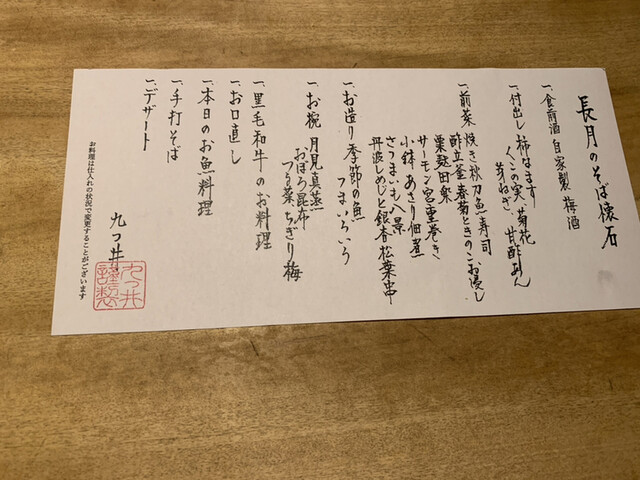 長月のそば懐石
一、食前酒 自家製 梅酒
一、付出し 柿なます
くこの実 菊花
芽ねぎ、甘酢あん
一、前菜 焼き秋刀魚寿司
酢立釜春菊ときのこお浸し
粟麩田楽
サーモン宮重巻き
小鉢 あさり佃煮
さつまいも八景
丹波しめじと銀杏松葉串
一、お造り 季節の魚
つまいろいろ
一、お椀 月見真蒸
おぼろ昆布
つる菜 ちぎり梅
一、黒毛和牛のお料理
一、お口直し
一、本日のお魚料理
一、手打そば
一、デザート
九つ井
お料理は仕入れの状況で変更することがございます